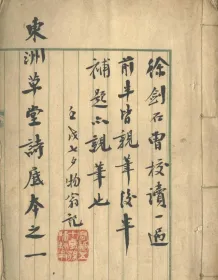 徐劍石曾校讀一過
前半皆親筆後半
補題亦親筆也
壬戌七夕物翁記
東洲草堂詩底本之一